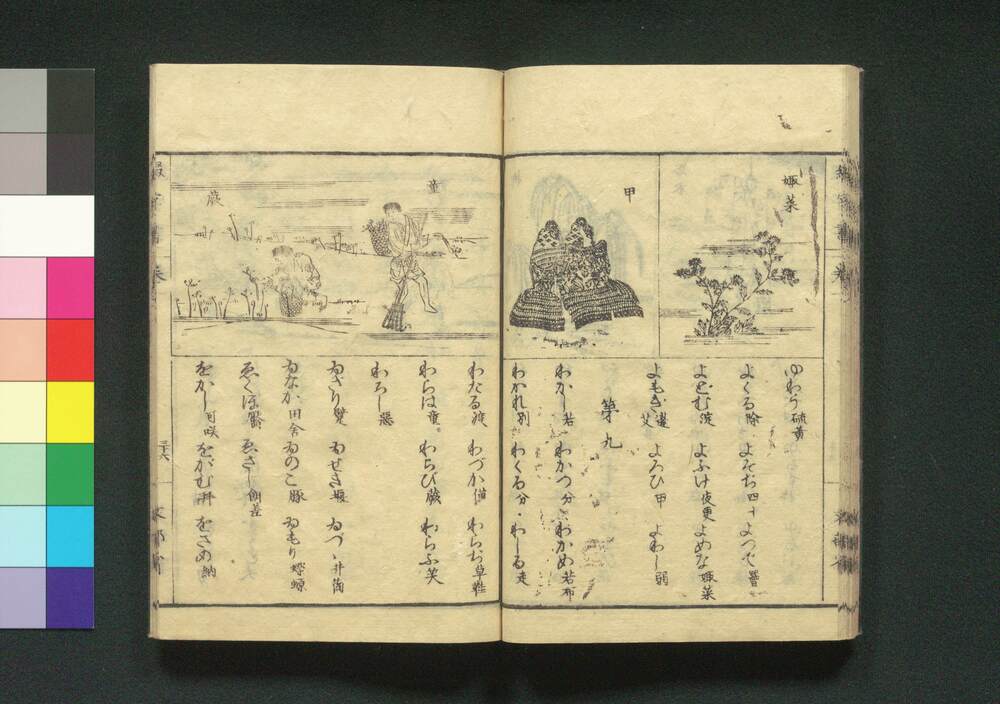 娵菜
甲
ゆわう硫黄
よくる除 よそぢ四十 よつで罾
よどむ淀 よふけ夜更 よめな娵菜
よもぎ蓬艾 よろひ甲 よわし弱
第九
わかし若 わかつ分 わかめ若布
わかれ別 わくる分 わしる走
童
蕨
わたる渡 わづか僅 わらぢ草鞋
わらは童 わらび蕨 わらふ笑
わろし惡
ゐざり躄 ゐせき堰 ゐづゝ井筒
ゐなか田舎 ゐのこ豚 ゐもり蠑螈
ゑくぼ靨 ゑざし
をかし可咲 をがむ拝 をさめ納
三十六